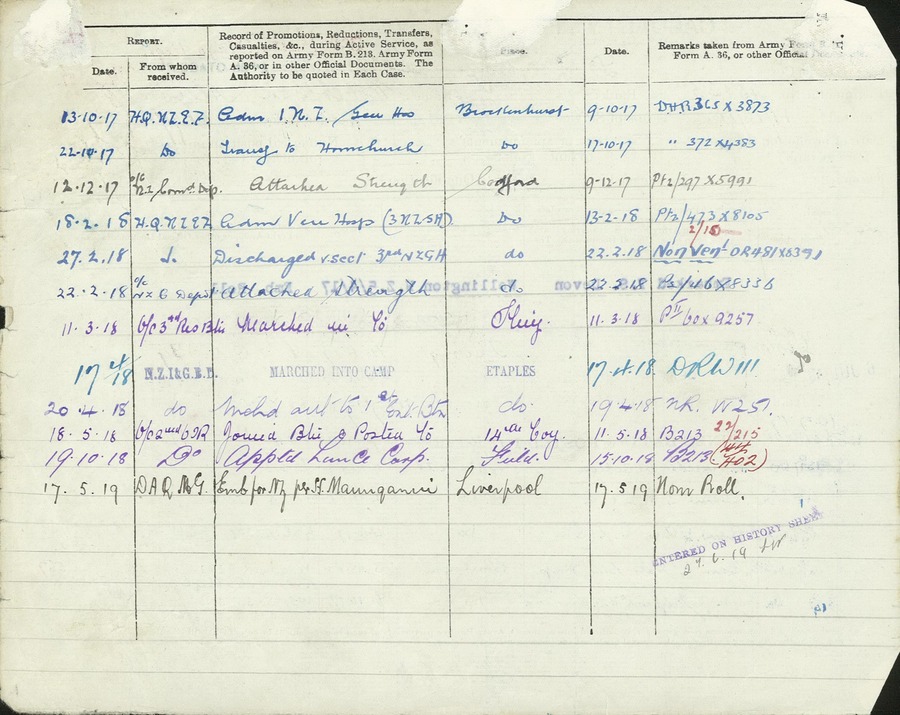 REPORT.
Record of Promotions, Reductions, Transfers, Casualties, &c., during Active Service, as reported on Army Form B. 213, Army Form A. 36, or in other Official Documents. The Authority to be quoted in Each Case.
Place.
Date.
Remarks taken from Army Form A. 36, or other Official
Date.
From whom received.
13-10-17 H.Q.N.Z.E.F. Adm 1. N.Z. Gen Hos Brockenhurst 9-10-17 DHR 365 X 3873
22-10-17 Do Transf to Hornchurch Do 17-10-17 " 372 X 4383
12.12.17 o/c N.Z. Comd Dep. Attached Strength Codford 9-12-17 Pt2/297 X 5991
18-2-18 H.Q.N.Z.E.F. Adm Ven Hosp (3 NZSH) Do 13-2-18 Pt2/473 X 8105
2/15
27.2.18 Discharged v. sect 3rd NZGH do 22.2.18 Non Venl OR 481 X 8391
22.2.18 o/c NZ C Depot Attached Strength do 22.2.18 X 8336
11.3.18 O/C 3rd Res Btn Marched in to Sling. 11.3.18 PII 60 X 9257
17 4/18 N.Z.I.&G.B.D. MARCHED INTO CAMP ETAPLES 17.4.18 DRW 111
20.4.18 do do. 19.4.18 NR. W251.
18.5.18 O/C 2nd OIR Joined Btn & Posted to 14th Coy. 11.5.18 B213 22/215
19.10.18 Do Apptd Lance Corp. Field. 15.10.18 B213 (402)
17.5.19 DAQMG. Emb for NZ per SS Maunganui Liverpool 17.5.19 Nom Roll.
ENTERED ON HISTORY SHEET
27.6.19